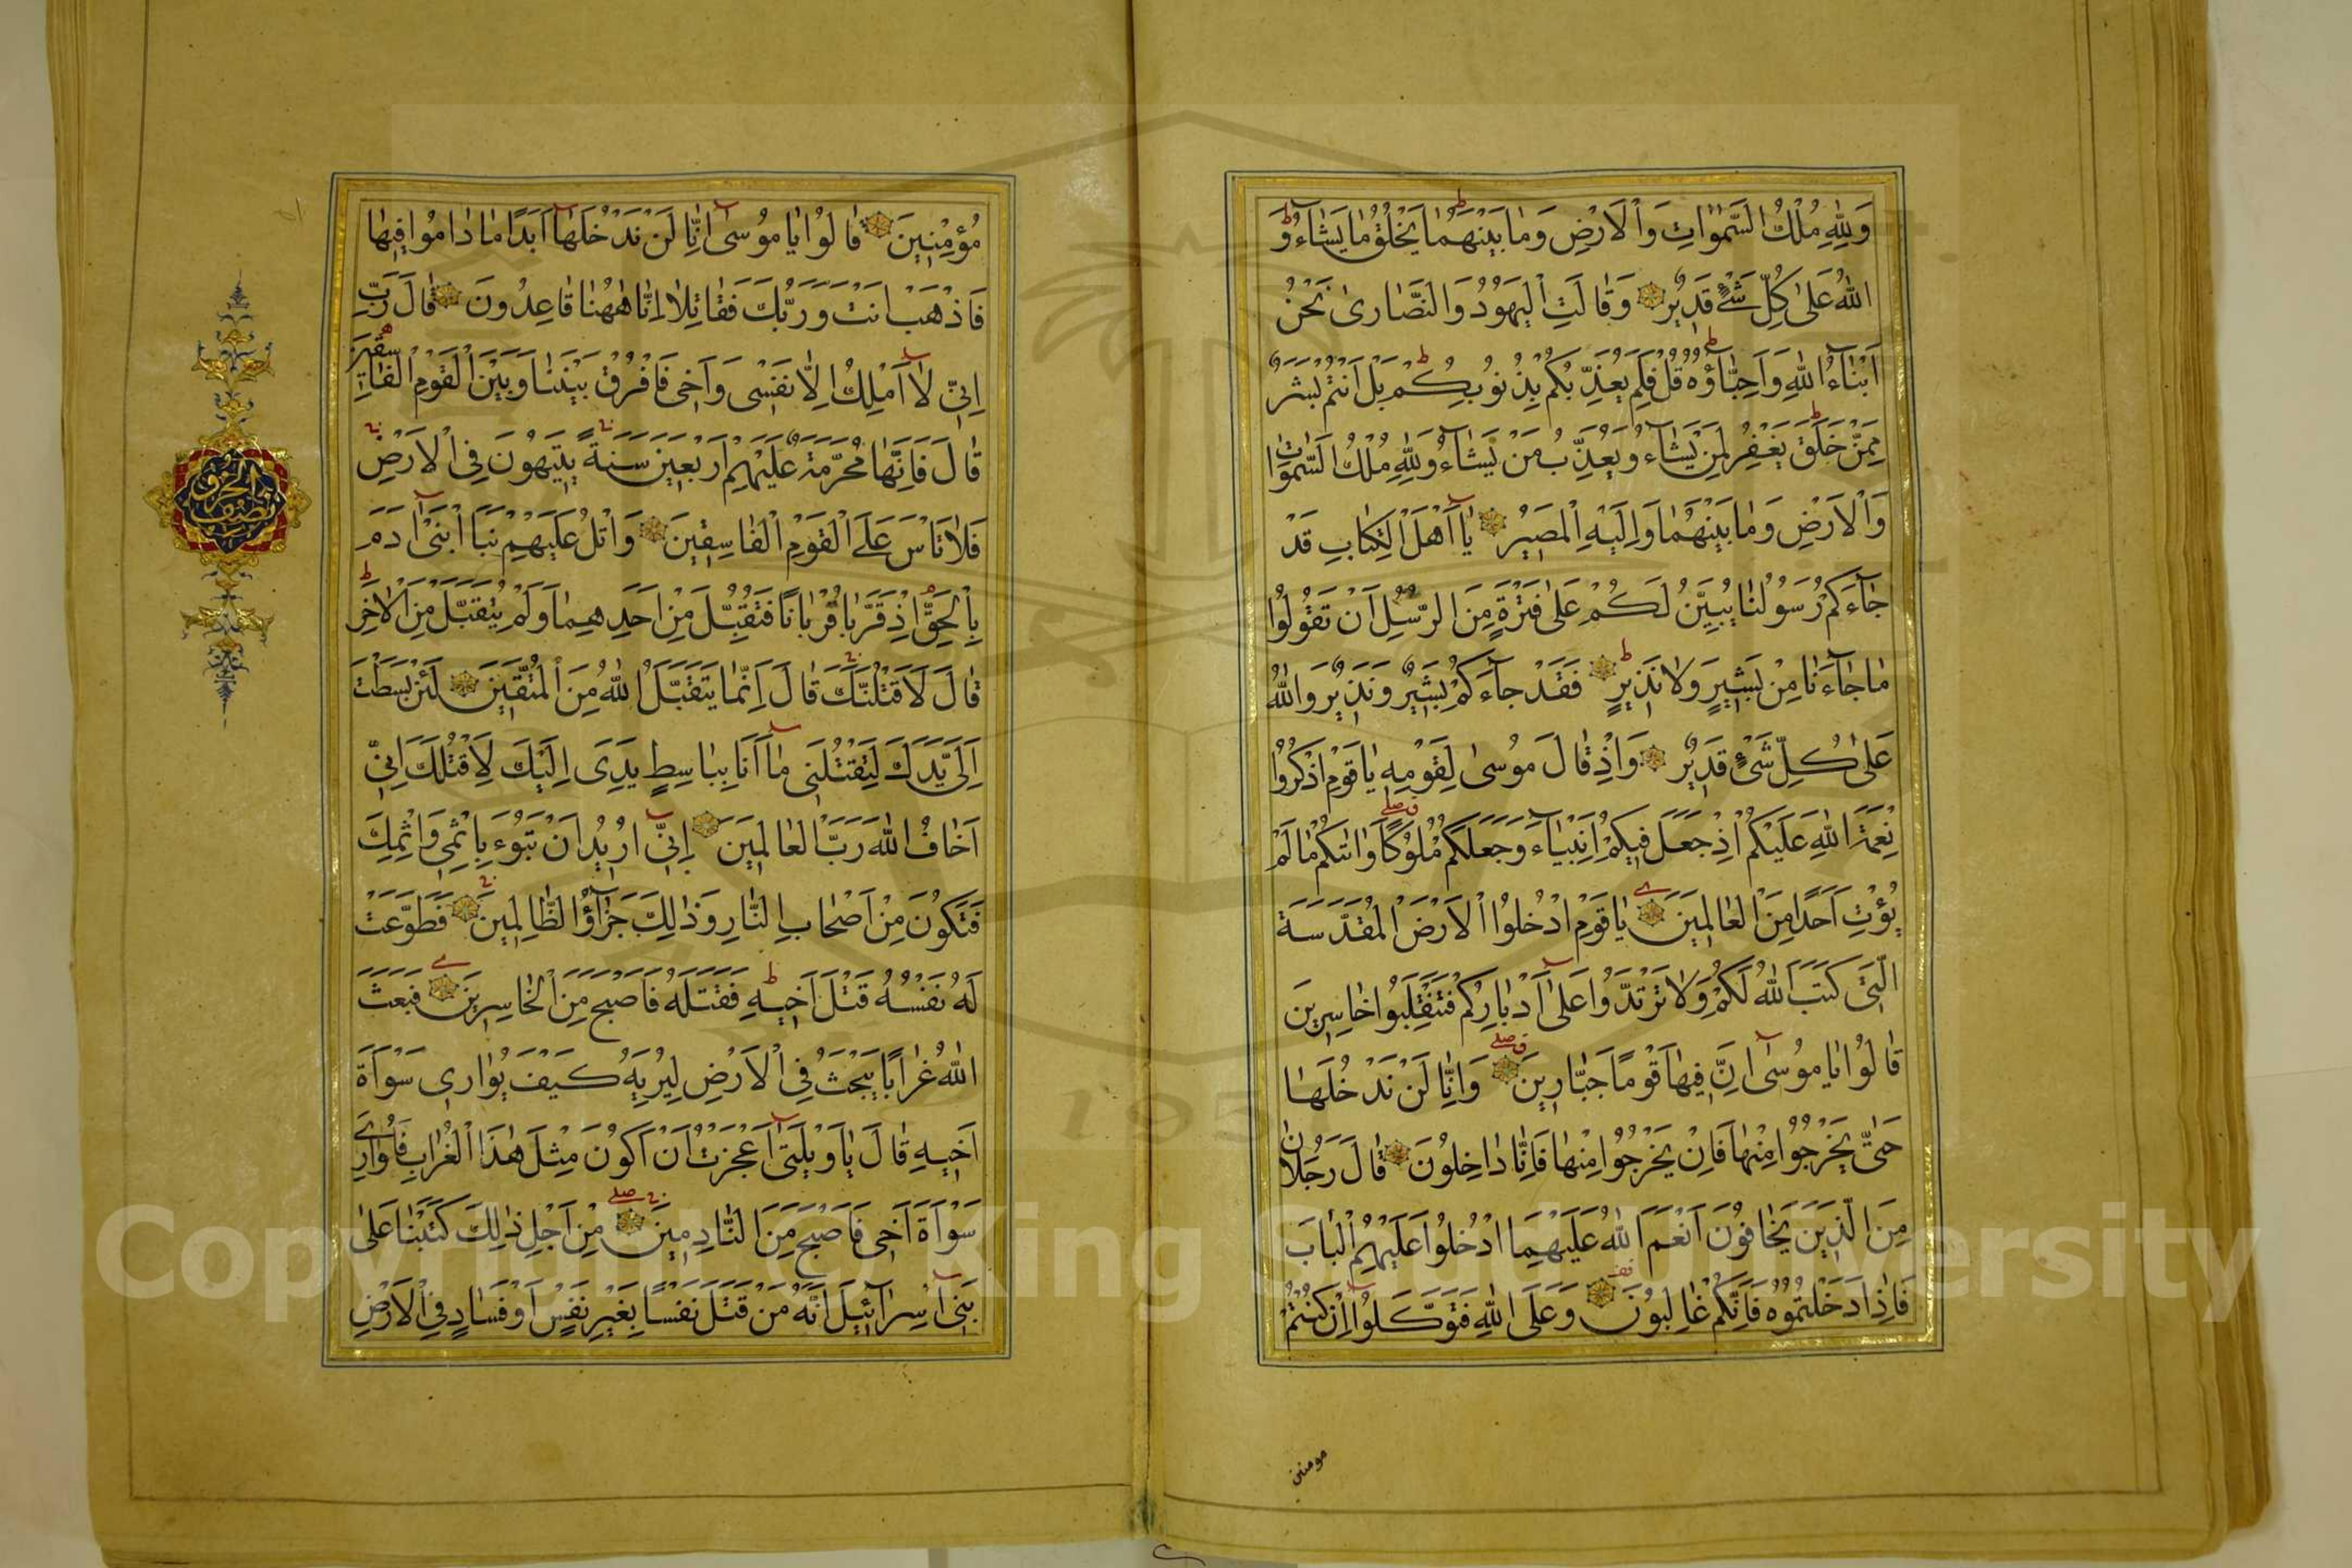 وَلِلّٰهِ مُلْكُ السَّمٰوَاتِ وَالْاَرْضِ وَمَا بَيْنَهُمَا يَخْلُقُ مَا يَشَآءُ وَ
اللّٰهُ عَلٰى كُلِّ شَيْءٍ قَدِيْرٌ وَقَالَتِ الْيَهُوْدُ وَالنَّصَارٰى نَحْنُ
اَبْنَآءُ اللّٰهِ وَاَحِبَّآؤُهُ قُلْ فَلِمَ يُعَذِّبُكُمْ بِذُنُوْبِكُمْ بَلْ اَنْتُمْ بَشَرٌ
مِمَّنْ خَلَقَ يَغْفِرُ لِمَنْ يَشَآءُ وَيُعَذِّبُ مَنْ يَشَآءُ وَلِلّٰهِ مُلْكُ السَّمٰوَاتِ
وَالْاَرْضِ وَمَا بَيْنَهُمَا وَاِلَيْهِ الْمَصِيْرُ يَا اَهْلَ الْكِتَابِ قَدْ
جَآءَكُمْ رَسُوْلُنَا يُبَيِّنُ لَكُمْ عَلٰى فَتْرَةٍ مِنَ الرُّسُلِ اَنْ تَقُوْلُوْا
مَا جَآءَنَا مِنْ بَشِيْرٍ وَلَا نَذِيْرٍ فَقَدْ جَآءَكُمْ بَشِيْرٌ وَنَذِيْرٌ وَاللّٰهُ
عَلٰى كُلِّ شَيْءٍ قَدِيْرٌ وَاِذْ قَالَ مُوْسٰى لِقَوْمِهِ يَا قَوْمِ اذْكُرُوْا
نِعْمَةَ اللّٰهِ عَلَيْكُمْ اِذْ جَعَلَ فِيْكُمْ اَنْبِيَآءَ وَجَعَلَكُمْ مُلُوْكًا وَاٰتٰكُمْ مَا لَمْ
يُؤْتِ اَحَدًا مِنَ الْعَالَمِيْنَ يَا قَوْمِ ادْخُلُوا الْاَرْضَ الْمُقَدَّسَةَ
الَّتِيْ كَتَبَ اللّٰهُ لَكُمْ وَلَا تَرْتَدُّوْا عَلٰى اَدْبَارِكُمْ فَتَنْقَلِبُوْا خَاسِرِيْنَ
قَالُوْا يَا مُوْسٰى اِنَّ فِيْهَا قَوْمًا جَبَّارِيْنَ وَاِنَّا لَنْ نَدْخُلَهَا
حَتّٰى يَخْرُجُوْا مِنْهَا فَاِنْ يَخْرُجُوْا مِنْهَا فَاِنَّا دَاخِلُوْنَ قَالَ رَجُلَانِ
مِنَ الَّذِيْنَ يَخَافُوْنَ اَنْعَمَ اللّٰهُ عَلَيْهِمَا ادْخُلُوْا عَلَيْهِمُ الْبَابَ
فَاِذَا دَخَلْتُمُوْهُ فَاِنَّكُمْ غَالِبُوْنَ وَعَلَى اللّٰهِ فَتَوَكَّلُوْا اِنْ كُنْتُمْ
مومنین
مُؤْمِنِيْنَ قَالُوْا يَا مُوْسٰى اِنَّا لَنْ نَدْخُلَهَا اَبَدًا مَا دَامُوْا فِيْهَا
فَاذْهَبْ اَنْتَ وَرَبُّكَ فَقَاتِلَا اِنَّا هٰهُنَا قَاعِدُوْنَ قَالَ رَبِّ
اِنِّيْ لَا اَمْلِكُ اِلَّا نَفْسِيْ وَاَخِيْ فَافْرُقْ بَيْنَنَا وَبَيْنَ الْقَوْمِ الْفَاسِقِيْنَ
قَالَ فَاِنَّهَا مُحَرَّمَةٌ عَلَيْهِمْ اَرْبَعِيْنَ سَنَةً يَتِيْهُوْنَ فِي الْاَرْضِ
فَلَا تَاْسَ عَلَى الْقَوْمِ الْفَاسِقِيْنَ وَاتْلُ عَلَيْهِمْ نَبَاَ ابْنَيْ اٰدَمَ
بِالْحَقِّ اِذْ قَرَّبَا قُرْبَانًا فَتُقُبِّلَ مِنْ اَحَدِهِمَا وَلَمْ يُتَقَبَّلْ مِنَ الْاٰخَرِ
قَالَ لَاَقْتُلَنَّكَ قَالَ اِنَّمَا يَتَقَبَّلُ اللّٰهُ مِنَ الْمُتَّقِيْنَ لَئِنْ بَسَطْتَ
اِلَيَّ يَدَكَ لِتَقْتُلَنِيْ مَا اَنَا بِبَاسِطٍ يَدِيَ اِلَيْكَ لِاَقْتُلَكَ اِنِّيْ
اَخَافُ اللّٰهَ رَبَّ الْعَالَمِيْنَ اِنِّيْ اُرِيْدُ اَنْ تَبُوْءَ بِاِثْمِيْ وَاِثْمِكَ
فَتَكُوْنَ مِنْ اَصْحَابِ النَّارِ وَذٰلِكَ جَزَآؤُا الظَّالِمِيْنَ فَطَوَّعَتْ
لَهُ نَفْسُهُ قَتْلَ اَخِيْهِ فَقَتَلَهُ فَاَصْبَحَ مِنَ الْخَاسِرِيْنَ فَبَعَثَ
اللّٰهُ غُرَابًا يَبْحَثُ فِي الْاَرْضِ لِيُرِيَهُ كَيْفَ يُوَارِيْ سَوْاَةَ
اَخِيْهِ قَالَ يَا وَيْلَتٰى اَعَجَزْتُ اَنْ اَكُوْنَ مِثْلَ هٰذَا الْغُرَابِ فَاُوَارِيَ
سَوْاَةَ اَخِيْ فَاَصْبَحَ مِنَ النَّادِمِيْنَ مِنْ اَجْلِ ذٰلِكَ كَتَبْنَا عَلٰى
بَنِيْ اِسْرَآئِيْلَ اَنَّهُ مَنْ قَتَلَ نَفْسًا بِغَيْرِ نَفْسٍ اَوْ فَسَادٍ فِي الْاَرْضِ
Copyright © King Saud University
195